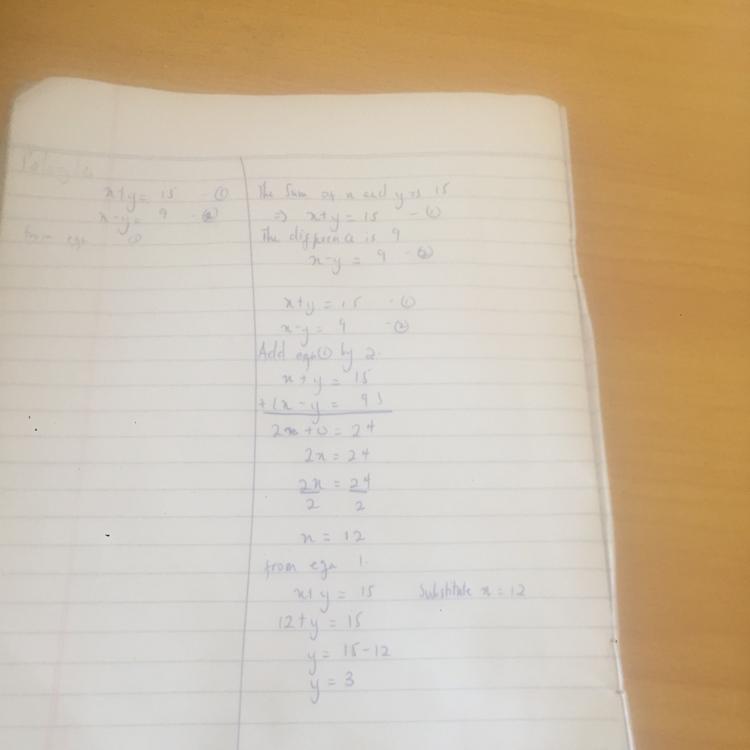 x+y = 15 - ①
x-y = 9 - ②
from eqn ①
The sum of x and y is 15
=> x+y = 15 - ①
The difference is 9
x-y = 9 - ②
x+y = 15 - ①
x-y = 9 - ②
Add eqn ① by 2.
x+y = 15
+(x-y = 9)
2x+0 = 24
2x = 24
2x = 24
2 2
x = 12
from eqn 1.
x+y = 15 Substitute x = 12
12+y = 15
y = 15-12
y = 3